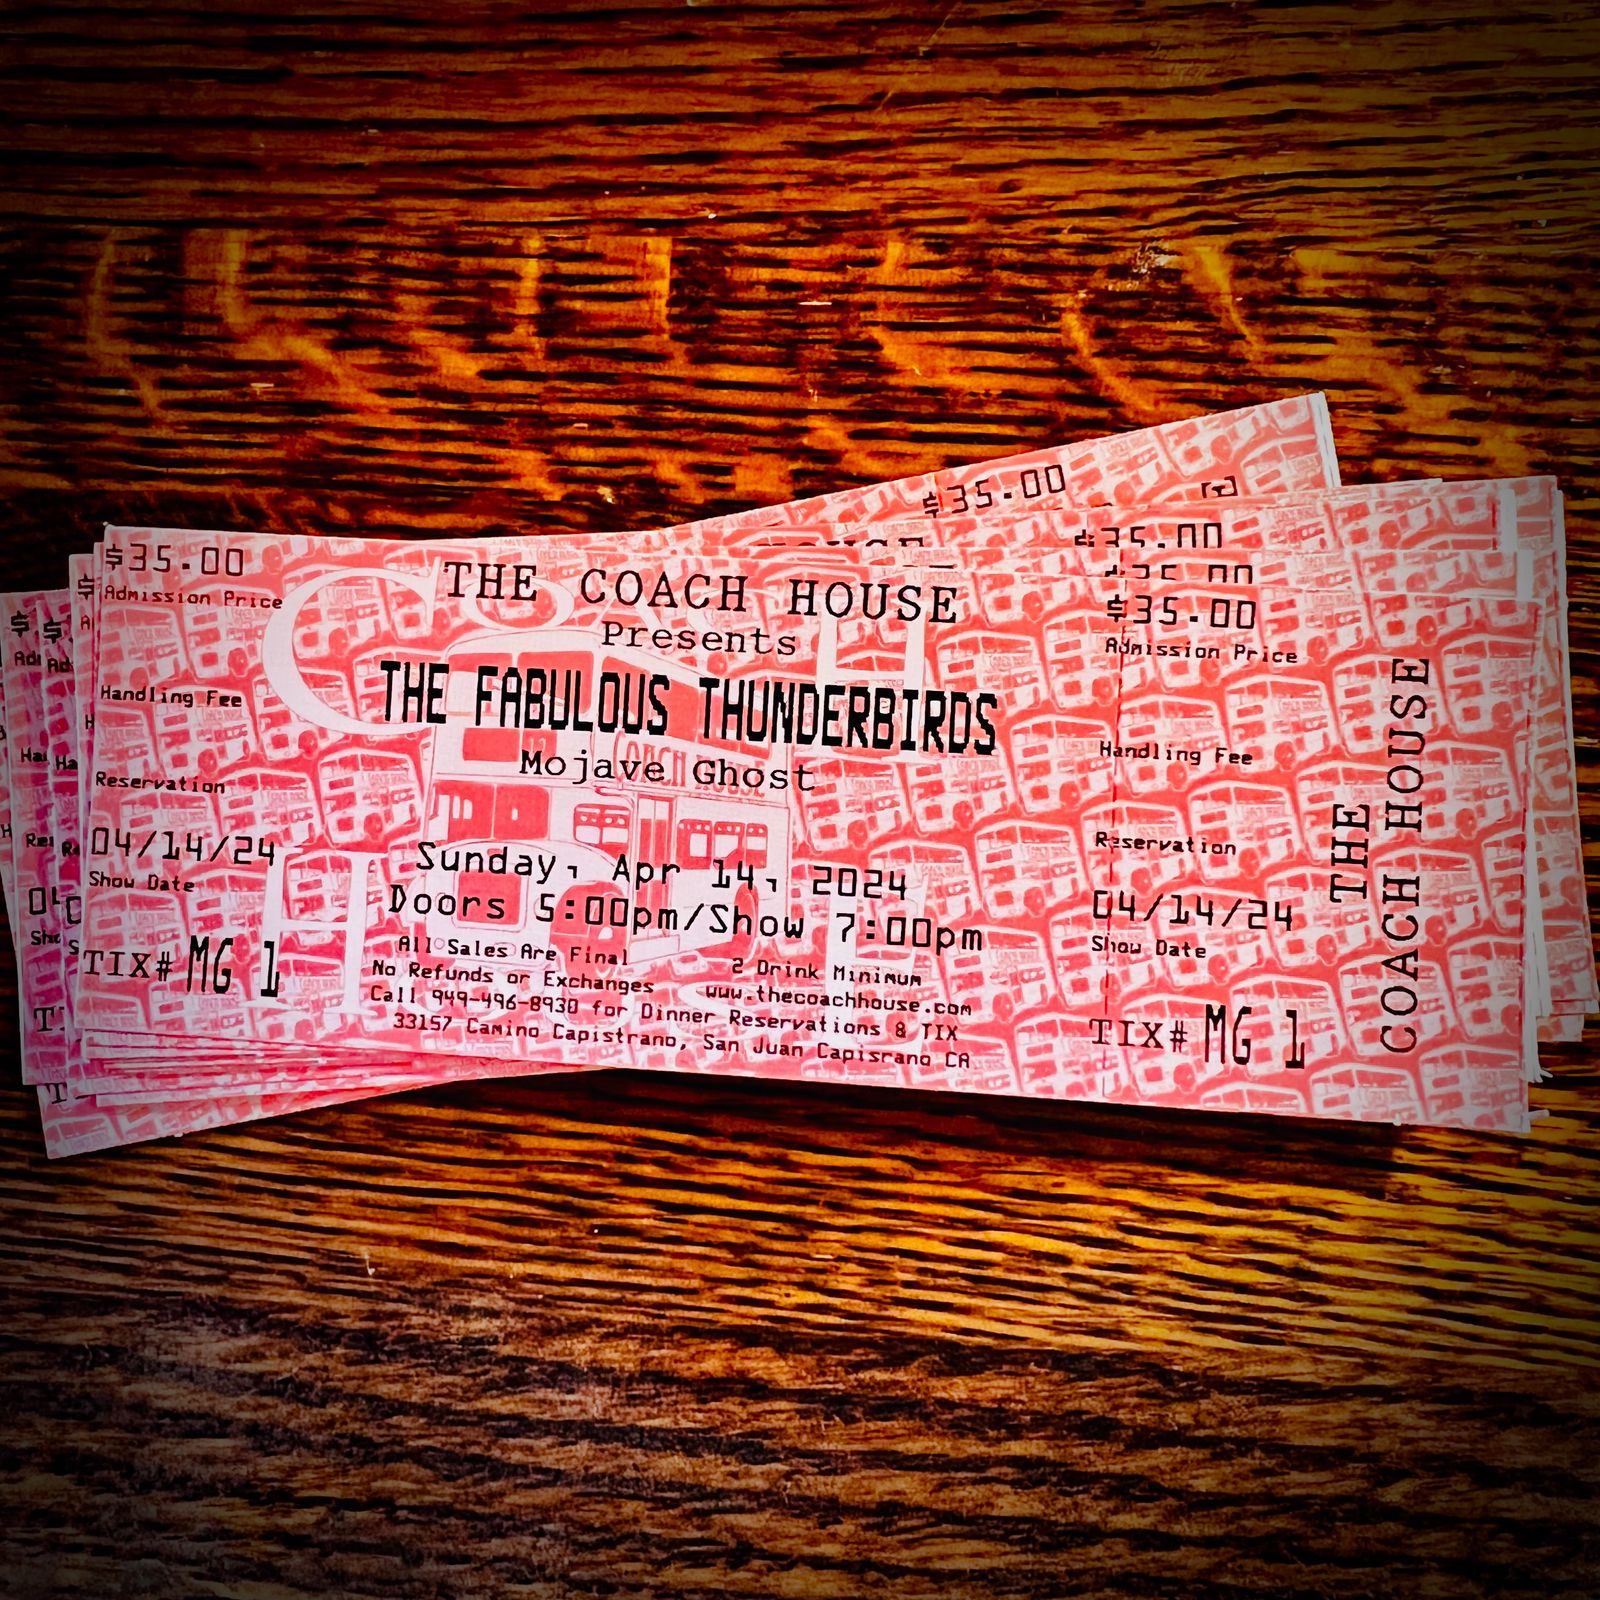 $35.00
Admission Price
Handling Fee
Reservation
04/14/24
Show Date
TIX# MG 1
THE COACH HOUSE
Presents
THE FABULOUS THUNDERBIRDS
Mojave Ghost
Sunday, Apr 14, 2024
Doors 5:00pm/Show 7:00pm
All Sales Are Final
No Refunds or Exchanges
2 Drink Minimum
www.thecoachhouse.com
Call 949-496-8930 for Dinner Reservations & TIX
33157 Camino Capistrano, San Juan Capisrano CA
$35.00
Admission Price
Handling Fee
Reservation
04/14/24
Show Date
TIX# MG 1
THE
COACH HOUSE
$35.00
$35.00